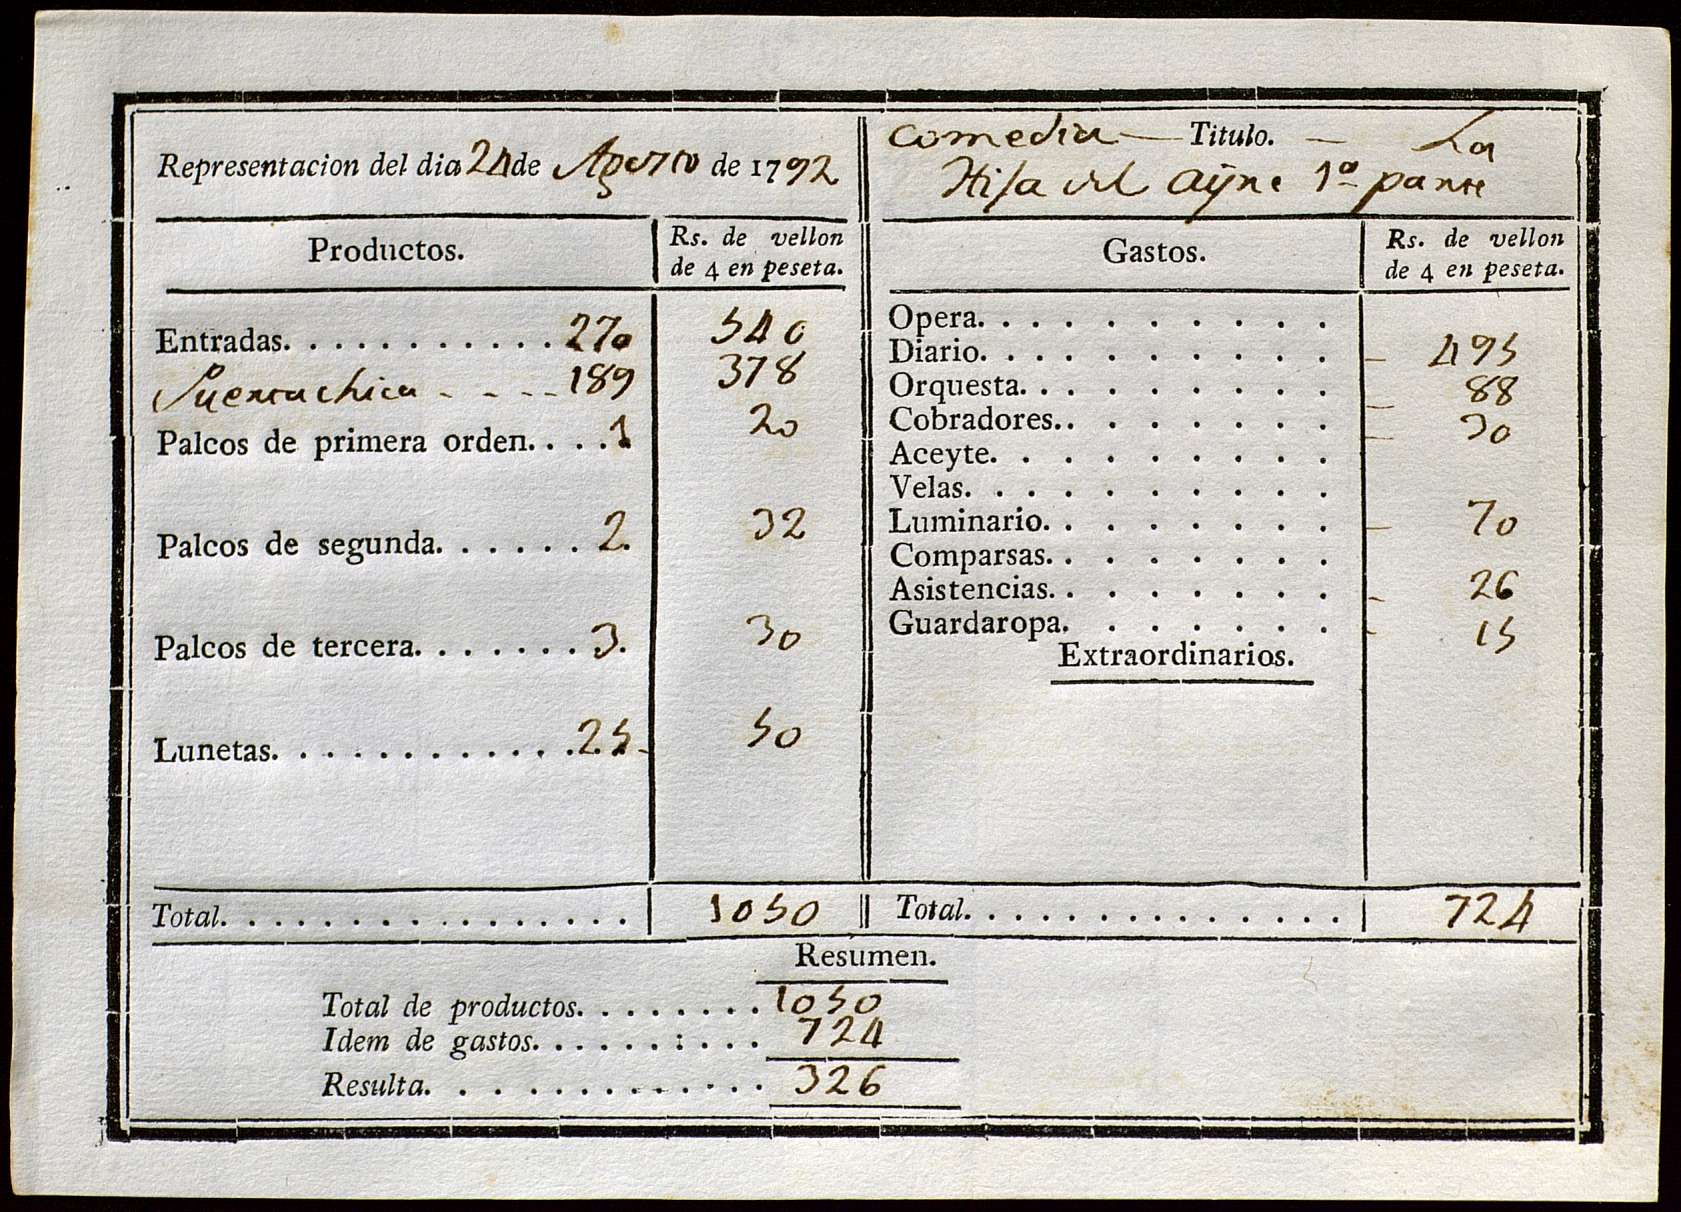 Representacion del dia 24 de Agosto de 1792
Comedia — Titulo. — La
Hija del Ayre 1ª parte
Productos.
Rs. de vellon
de 4 en peseta.
Entradas. . . . . . . . . . . 270 540
Puerta chica - - - - 189 378
Palcos de primera orden. . . . 1 20
Palcos de segunda. . . . . . 2. 32
Palcos de tercera. . . . . . . 3. 30
Lunetas. . . . . . . . . . . . 25 - 50
Total. . . . . . . . . . . . . . . . 1050
Gastos.
Rs. de vellon
de 4 en peseta.
Opera. . . . . . . . . .
Diario. . . . . . . . . . - 495
Orquesta. . . . . . . . . - 88
Cobradores.. . . . . . . - 30
Aceyte. . . . . . . . .
Velas. . . . . . . . . .
Luminario. . . . . . . . - 70
Comparsas. . . . . . . .
Asistencias. . . . . . . . - 26
Guardaropa. . . . . . . - 15
Extraordinarios.
Total. . . . . . . . . . . . . . . 724
Resumen.
Total de productos. . . . . . . . 1050
Idem de gastos. . . . . . : . . . 724
Resulta. . . . . . . . . . . . . 326